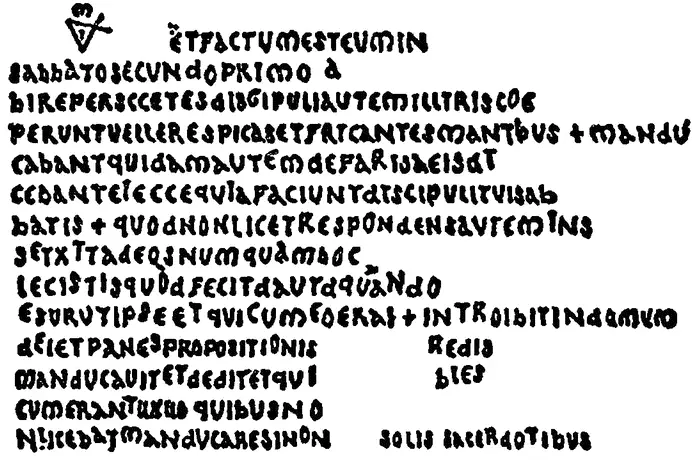 ETFACTUMESTEUMIN
SABBATOSECUNDOPRIMO A
BIREPERSCCETESDISGIPULIAUTEMILLTRISCOE
PERUNTVELLERESPICASETFRICANTESMANTBUS + MANDU
CABANTQUIDAMAUTEMDEFARISAEISDT
CEBANTEIECCEQUIAFACIUNTDTSCIPULITUISAB
BATIS + QUODNONLICETRESPONDENSAUTEMINS
SETXTTADEQSNUMQUAMBOC
LECISTISQUODFECITDAUTDQUANDO
ESURUTIPSEETQUICUMEOERAI + INTROIBITINDUMUM
DEIETPANESPROPOSITIONIS REDIS
MANDUCAUITETDEDITETQUI BLES
CUMERANTUXUO QUIBUSNO
NLICEBATMANDUCARESINON SOLIS SACERDOTIBUS